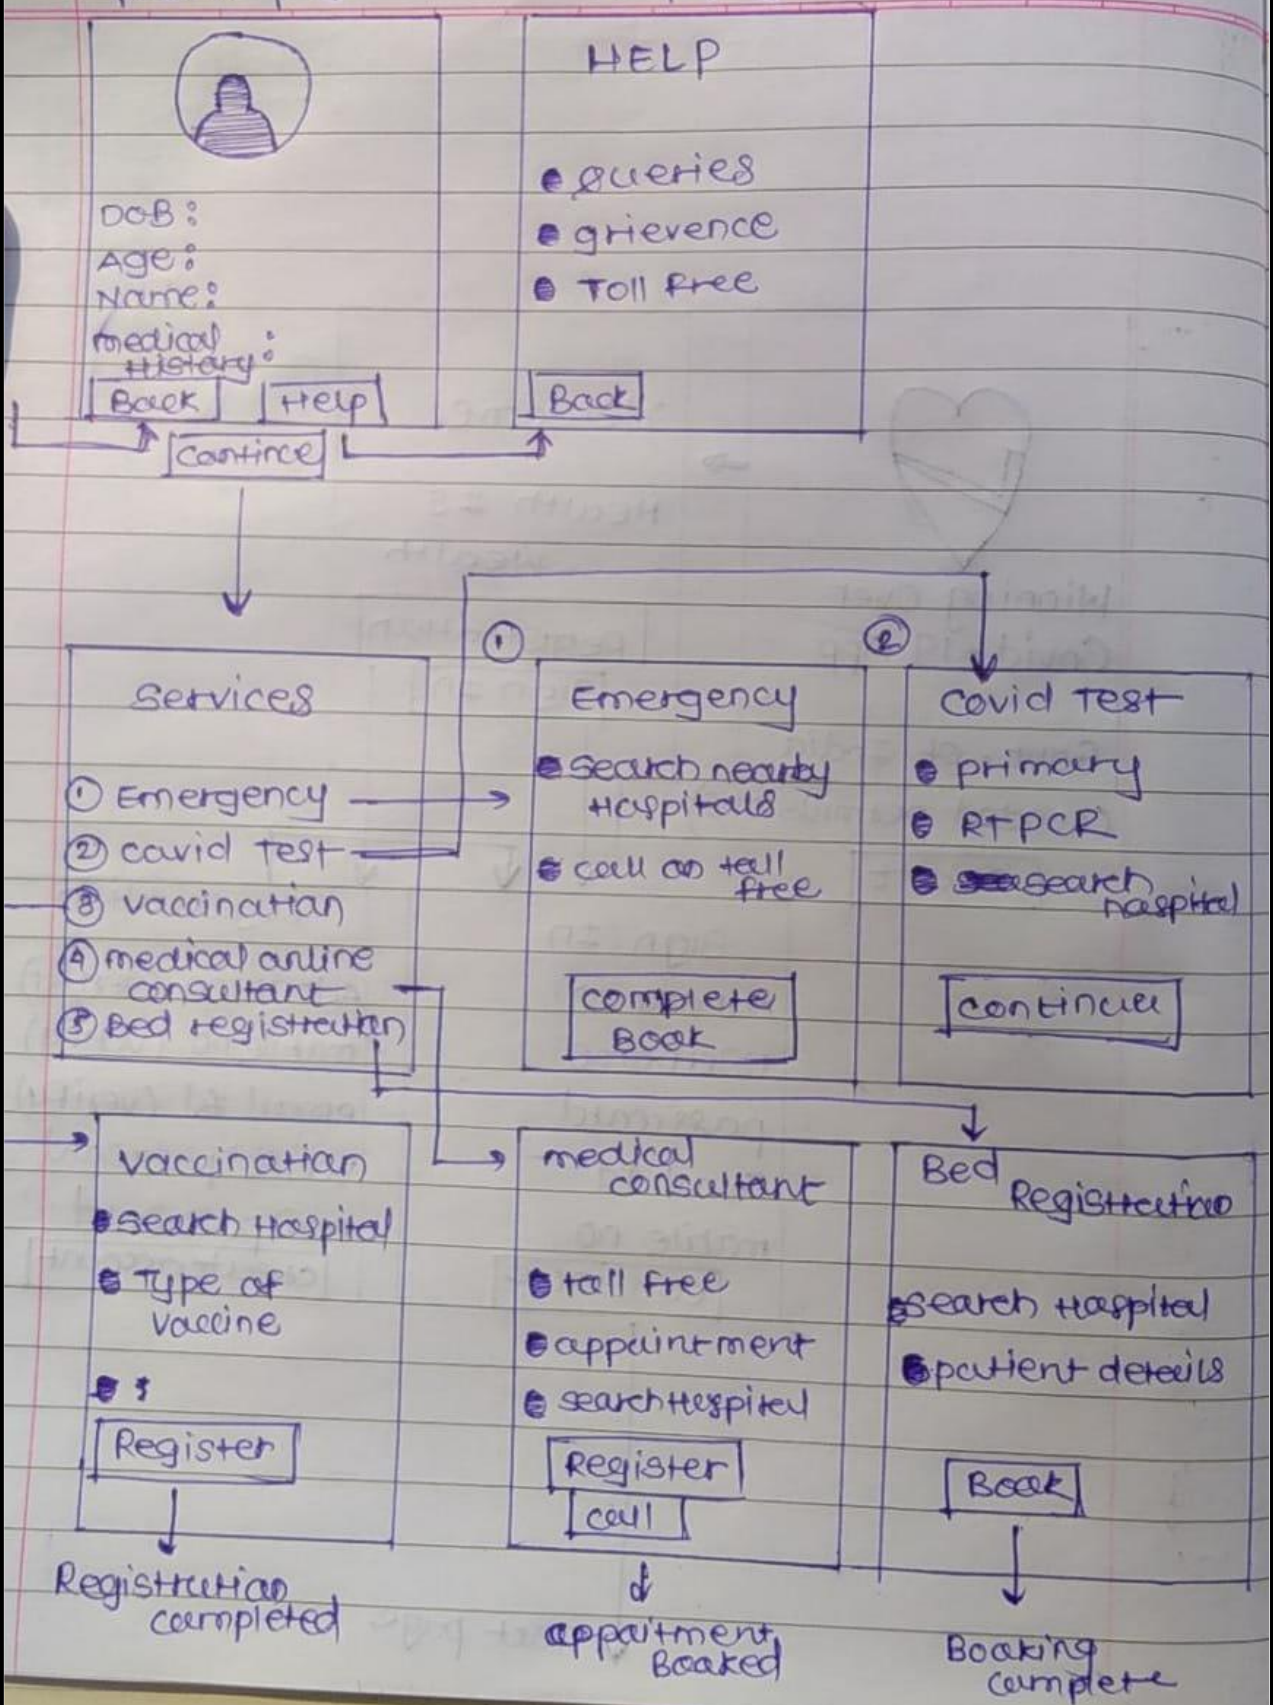 HELP
DOB:
Age:
Name:
medical
History:
Back
Help
Contince
• queries
• grievence
• Toll Free
Back
Services
① Emergency
② covid Test
③ vaccination
④ medical online
consultant
⑤ Bed registration
①
Emergency
• search nearby
Hospitals
• call on toll
free
complete
Book
②
covid Test
• primary
• RTPCR
• search
hospital
continue
vaccination
• search Hospital
• Type of
vaccine
•
Register
Registration
completed
medical
consultant
• toll free
• appointment
• search Hospital
Register
call
appoitment
Booked
Bed
Registration
• search Hospital
• patient details
Book
Booking
complete